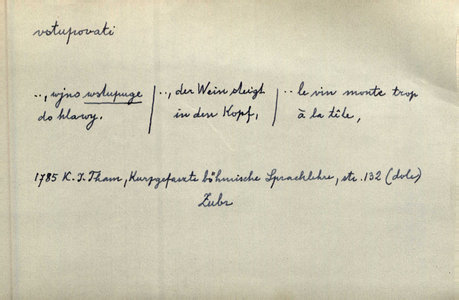 vstupovati
.., wjno wstupuge | .., der Wein steigt | .. le vin monte trop
do hlawy. | in den Kopf, | à la tête,
1785 K. I. Tham, Kurzgefaszte böhmische Sprachlehre, str. 132 (dole)
Zubr